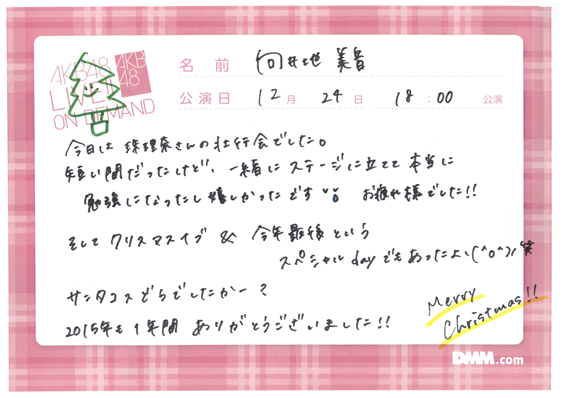 AKB48
LIVE!!
ON DEMAND
AKB
48
名 前 向井地 美音
公演日 12月 24日 18:00 公演
今日は 珠理奈さんの壮行会でした。
短い間だったけど、一緒にステージに立てて本当に
勉強になったし嬉しかったです お疲れ様でした!!
そして クリスマスイブ & 今年最後という
スペシャルdayでもあったよ、(^o^)/笑
サンタコスどうでしたかー?
2015年も1年間 ありがとうございました!!
Merry
Christmas!!
DMM.com